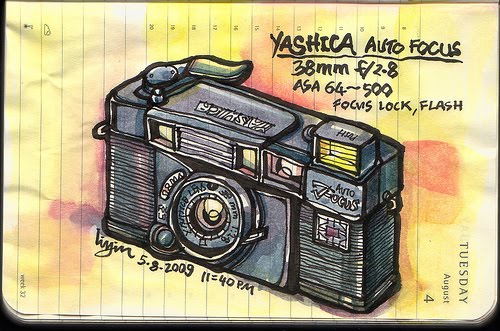 YASHICA AUTO FOCUS
38mm f/2.8
ASA 64~500
FOCUS LOCK, FLASH
YASHICA
AUTO
FOCUS
38mm
5.8.2009
11=40PM
week 32
TUESDAY
August
4